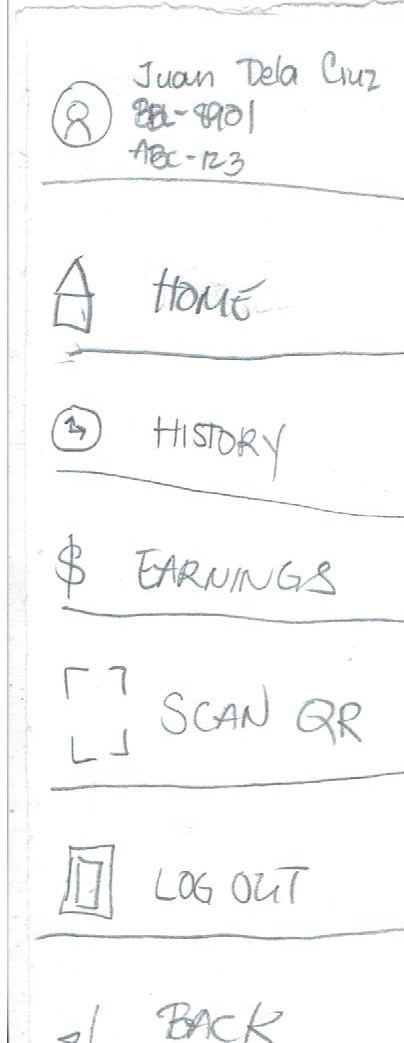 Juan Dela Cruz
ABC-123
HOME
HISTORY
$ EARNINGS
SCAN QR
LOG OUT
BACK